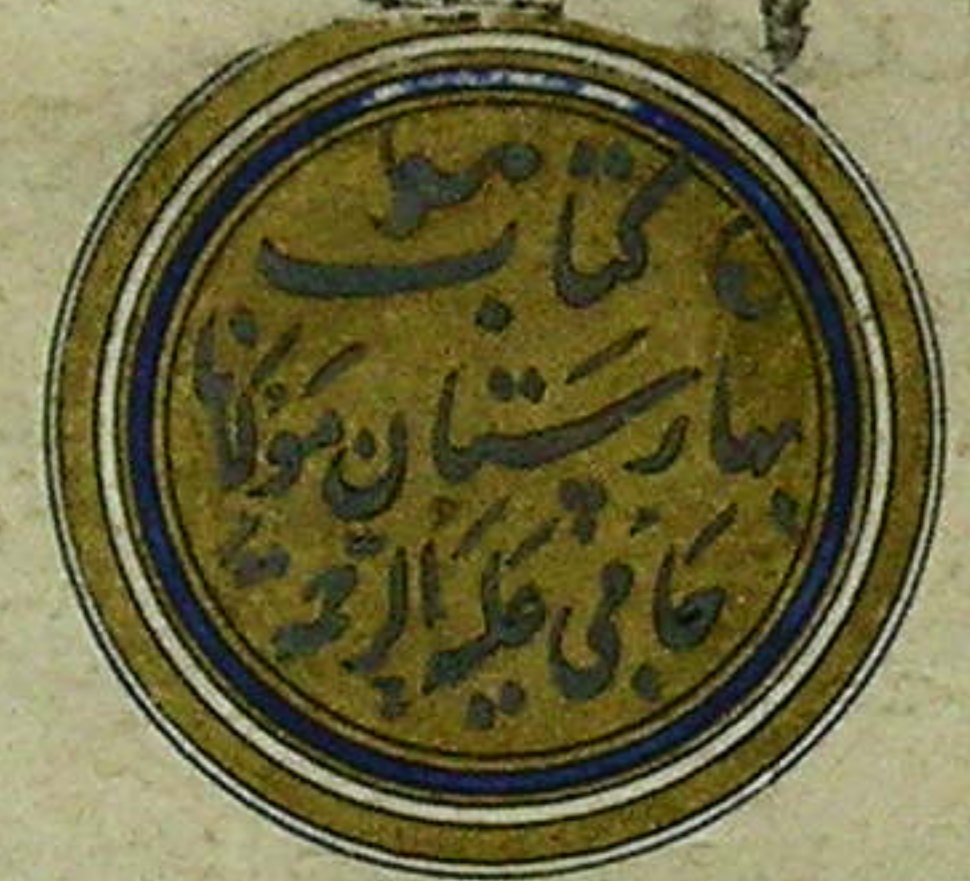 کتاب
بهارستان مَوْلَانَا
جَامِی عَلَیْهِ الرَّحْمَة